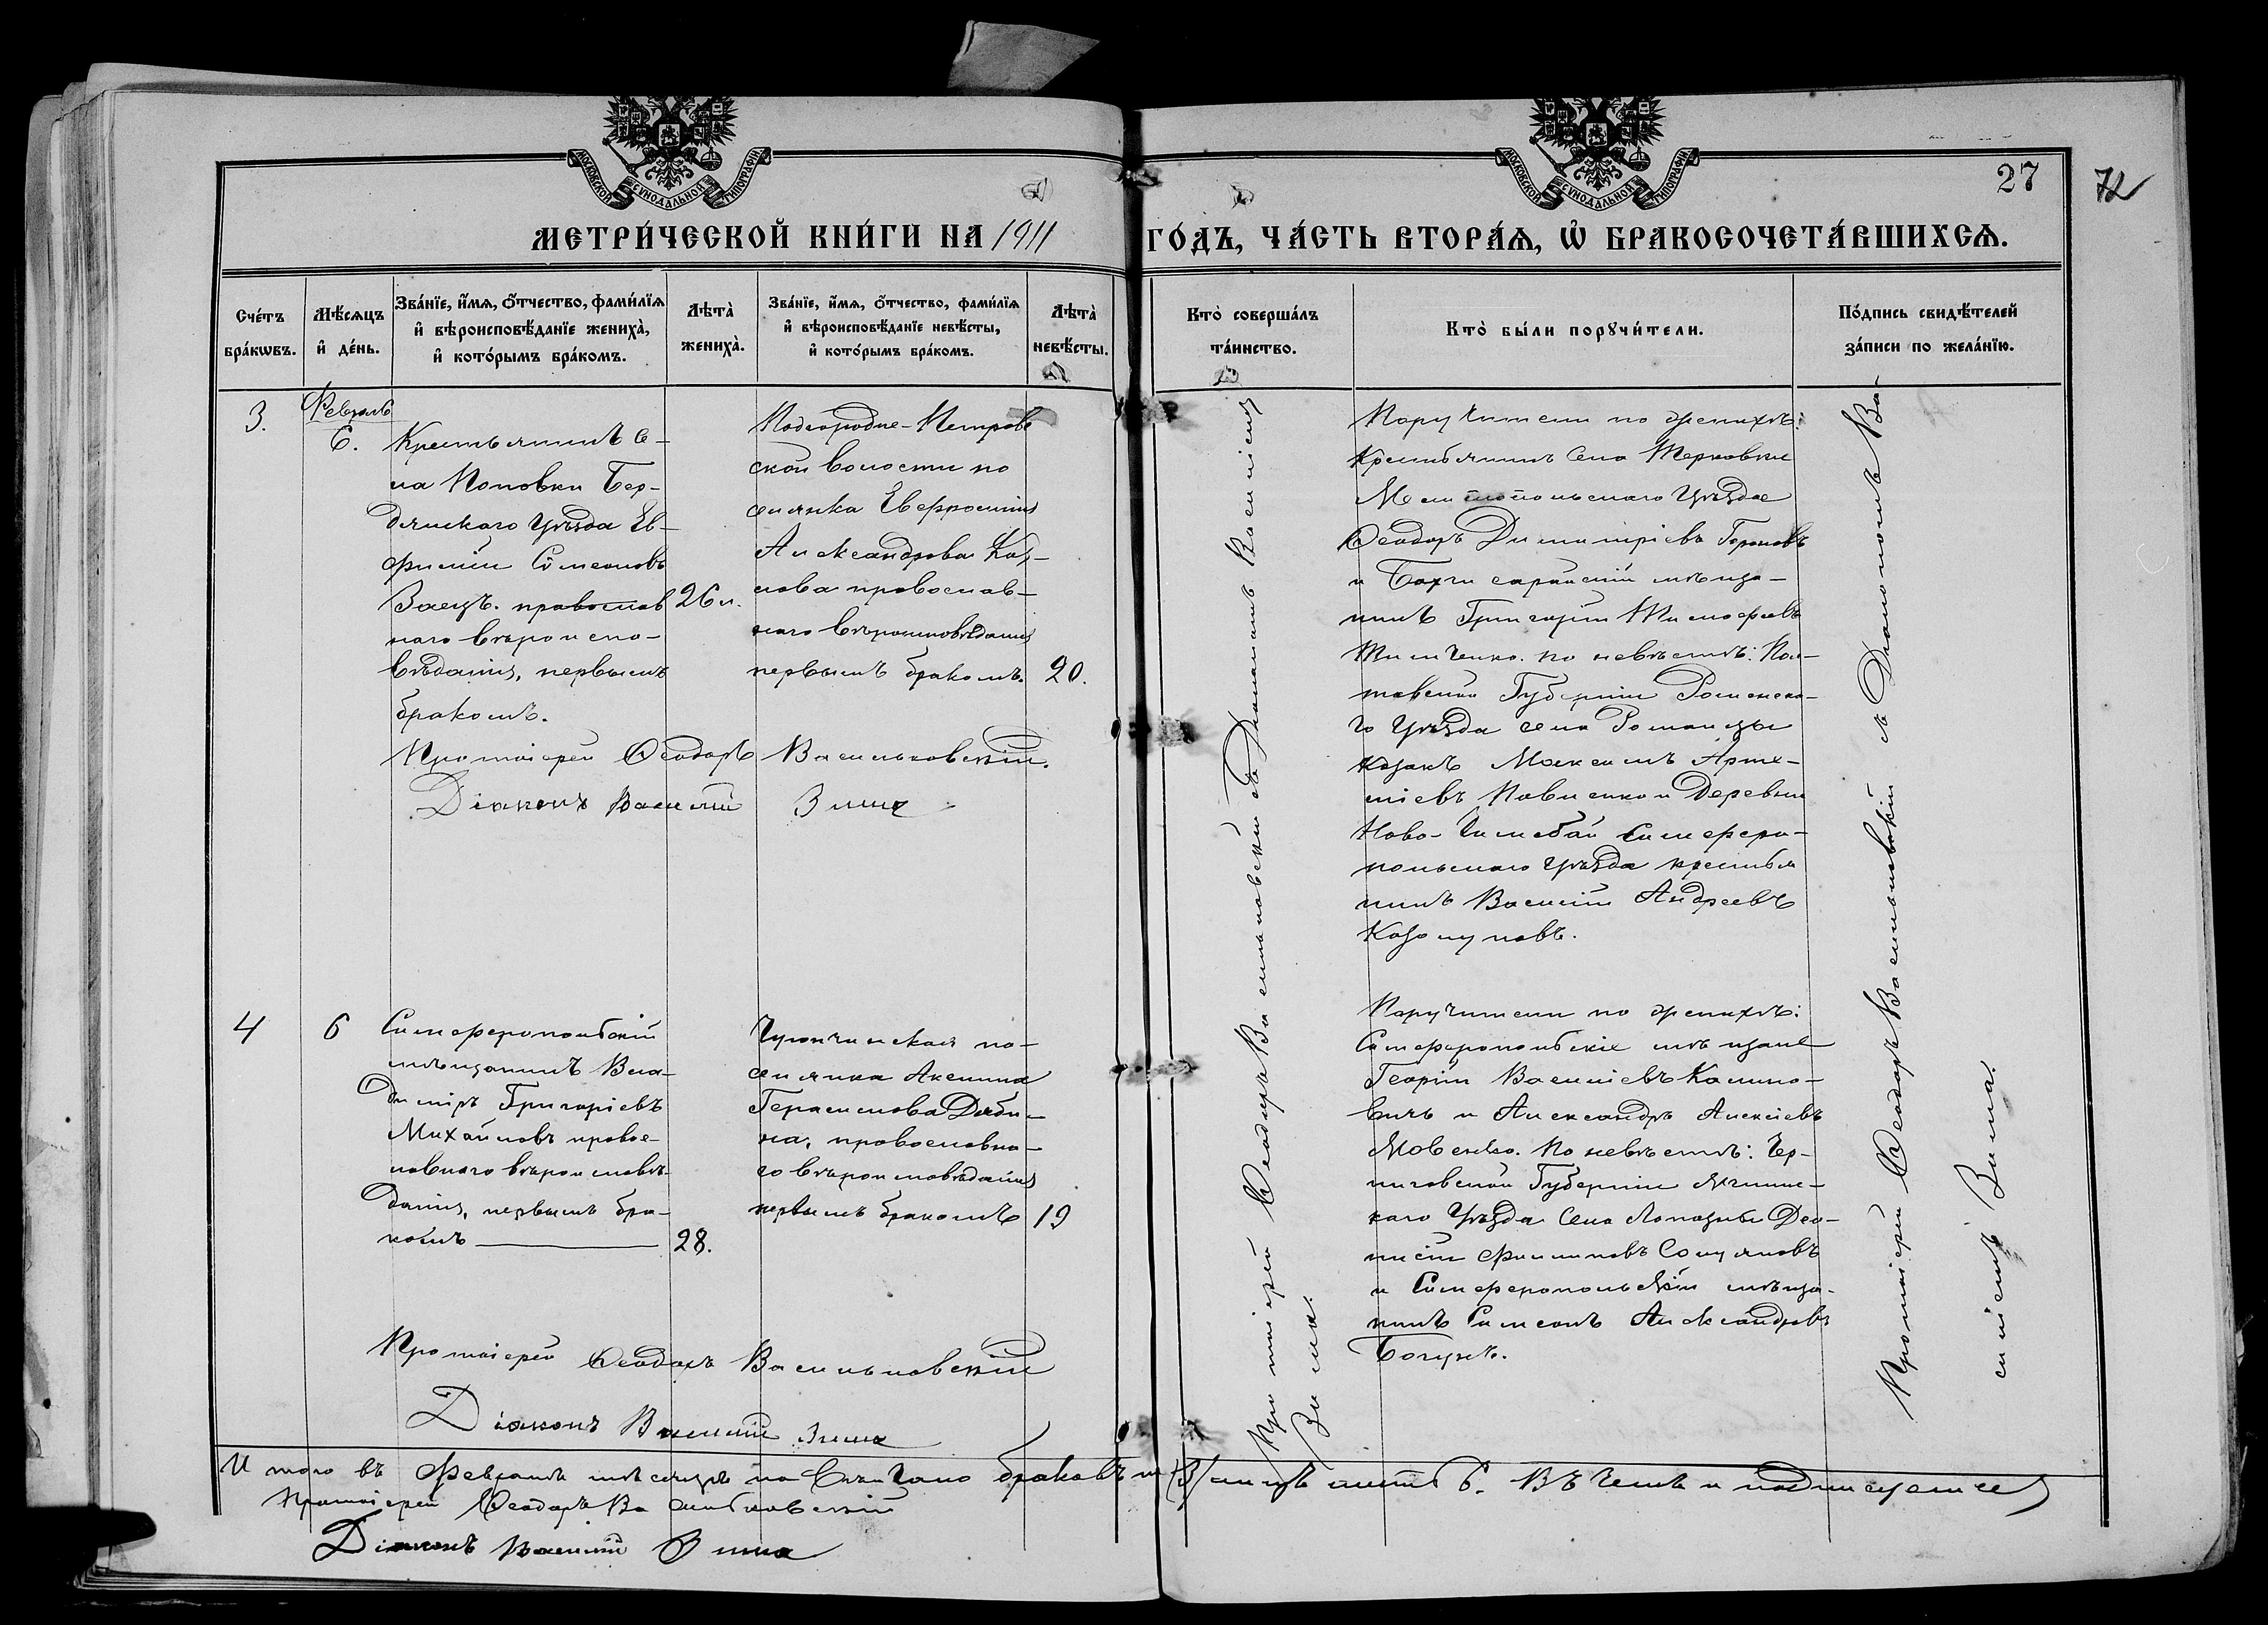 МОСКОВСКОЙ СѴНОДАЛЬНОЙ ТИПОГРАФІИ
МОСКОВСКОЙ СѴНОДАЛЬНОЙ ТИПОГРАФІИ
27
72
МЕТРИ́ЧЕСКОЙ КНИ́ГИ НА 1911 ГО́ДЪ, ЧА́СТЬ ВТОРА́Ѧ, Ѽ БРАКОСОЧЕТА́ВШИХСѦ.
Сче́тъ
бра́кѡвъ.
Мѣ́сѧцъ
и҆ де́нь.
Зва́нїе, и҆́мѧ, ѻ҆́тчество, фами́лїѧ
и҆ вѣроисповѣ́данїе жениха̀,
и҆ кото́рымъ бра́комъ.
Лѣта̀
жениха̀.
Зва́нїе, и҆́мѧ, ѻ҆́тчество, фами́лїѧ
и҆ вѣроисповѣ́данїе невѣ́сты,
и҆ кото́рымъ бра́комъ.
Лѣта̀
невѣ́сты.
Кто̀ соверша́лъ
та́инство.
Кто̀ бы́ли порꙋчи́тели.
По́дпись свидѣ́телей
за́писи по жела́нїю.
3.
Февраль
6.
Крестьянинъ се-
ла Поповки Бер-
дянскаго Уѣзда Ев-
фимій Симеоновъ
Заецъ. православ
наго вѣроиспо-
вѣданія, первымъ
бракомъ.
26 л.
Подгородне-Петров
ской волости по
селянка Евфросинія
Александрова Коз-
лова православ-
наго вѣроисповѣданія
первымъ бракомъ.
20.
Протоіерей Ѳеодоръ Васильковскій.
Діаконъ Василій Зима
Протоіерей Ѳеодоръ Васильковскій съ Діакономъ Василіемъ
Зима.
Поручители по женихѣ:
Крестьянинъ села Терновки
Мелитопольскаго Уѣзда
Ѳеодоръ Димитріевъ
и Бахчисарайскій мѣща-
нинъ Григорій Тимоѳеевъ
Тимченко. по невѣстѣ: Пол-
тавской Губерніи Роменска-
го Уѣзда села
казакъ Максимъ Арте-
міевъ Павленко и деревни
Ново- Симферо-
польскаго Уѣзда крестья
нинъ Василій Андреевъ
Протоіерей Ѳеодоръ Васильковскій съ Діакономъ Ва-
силіемъ Зима.
4
6
Симферопольскій
мѣщанинъ Вла-
диміръ Григоріевъ
Михайловъ правос-
лавнаго вѣроисповѣ-
данія, первымъ бра-
комъ
28.
по-
селянка Аксинія
Герасимова Дюби-
на, православна-
го вѣроисповѣданія
первымъ бракомъ
19
Протоіерей Ѳеодоръ Васильковскій
Діаконъ Василій Зима
Поручители по женихѣ:
Симферопольскіе мѣщане
Георгій Василіевъ Калино-
вичъ и Александръ Алексіевъ
Яковенко. По невѣстѣ: Чер-
ниговской Губерніи
каго Уѣзда села Лопазны Део-
нисій Филиповъ
и Симферопольскій мѣща-
нинъ Симеонъ Александровъ
Богунъ.
Итого въ Февралѣ мѣсяцѣ повѣнчано браковъ шесть 6. Въ чемъ и подписуемся
Протоіерей Ѳеодоръ Васильковскій
Діаконъ Василій Зима